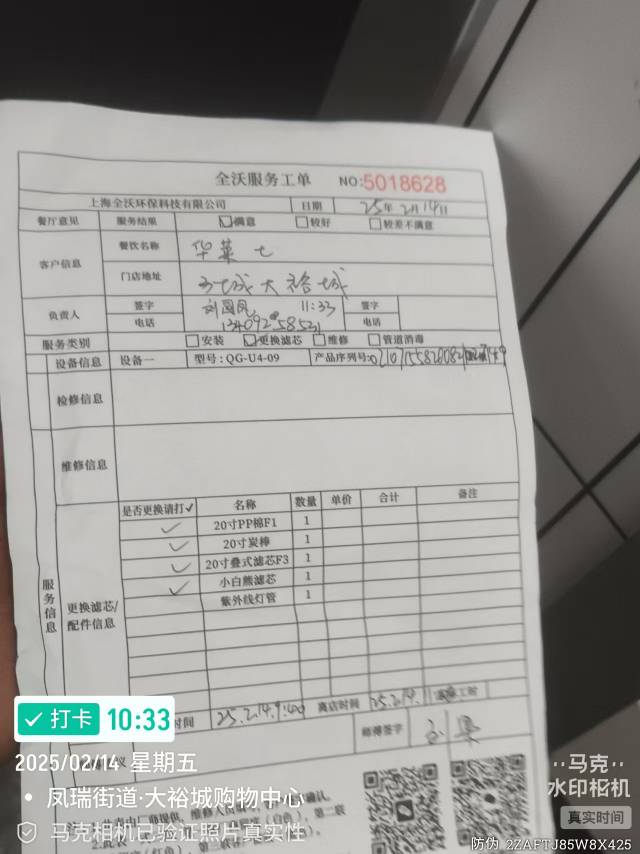 全沃服务工单 NO:5018628
上海全沃环保科技有限公司 日期 25年2月14日
餐厅意见 服务结果 ☑满意 □较好 □较差不满意
客户信息 餐饮名称 华莱士
门店地址 大裕城
负责人 签字 刘国凤 11:33 签字
电话 电话
服务类别 □安装 ☑更换滤芯 □维修 □管道消毒
设备信息 设备一 型号:QG-U4-09 产品序列号:
检修信息
维修信息
服务信息
更换滤芯/配件信息
是否更换请打✓ 名称 数量 单价 合计 备注
✓ 20寸PP棉F1 1
✓ 20寸炭棒 1
✓ 20寸叠式滤芯F3 1
✓ 小白熊滤芯 1
紫外线灯管 1
时间 25.2.14. 离店时间 25.2.14. 工时
师傅签字
打卡 10:33
2025/02/14 星期五
凤瑞街道·大裕城购物中心
马克相机已验证照片真实性
马克
水印相机
真实时间
防伪 2ZAFTJ85W8X425